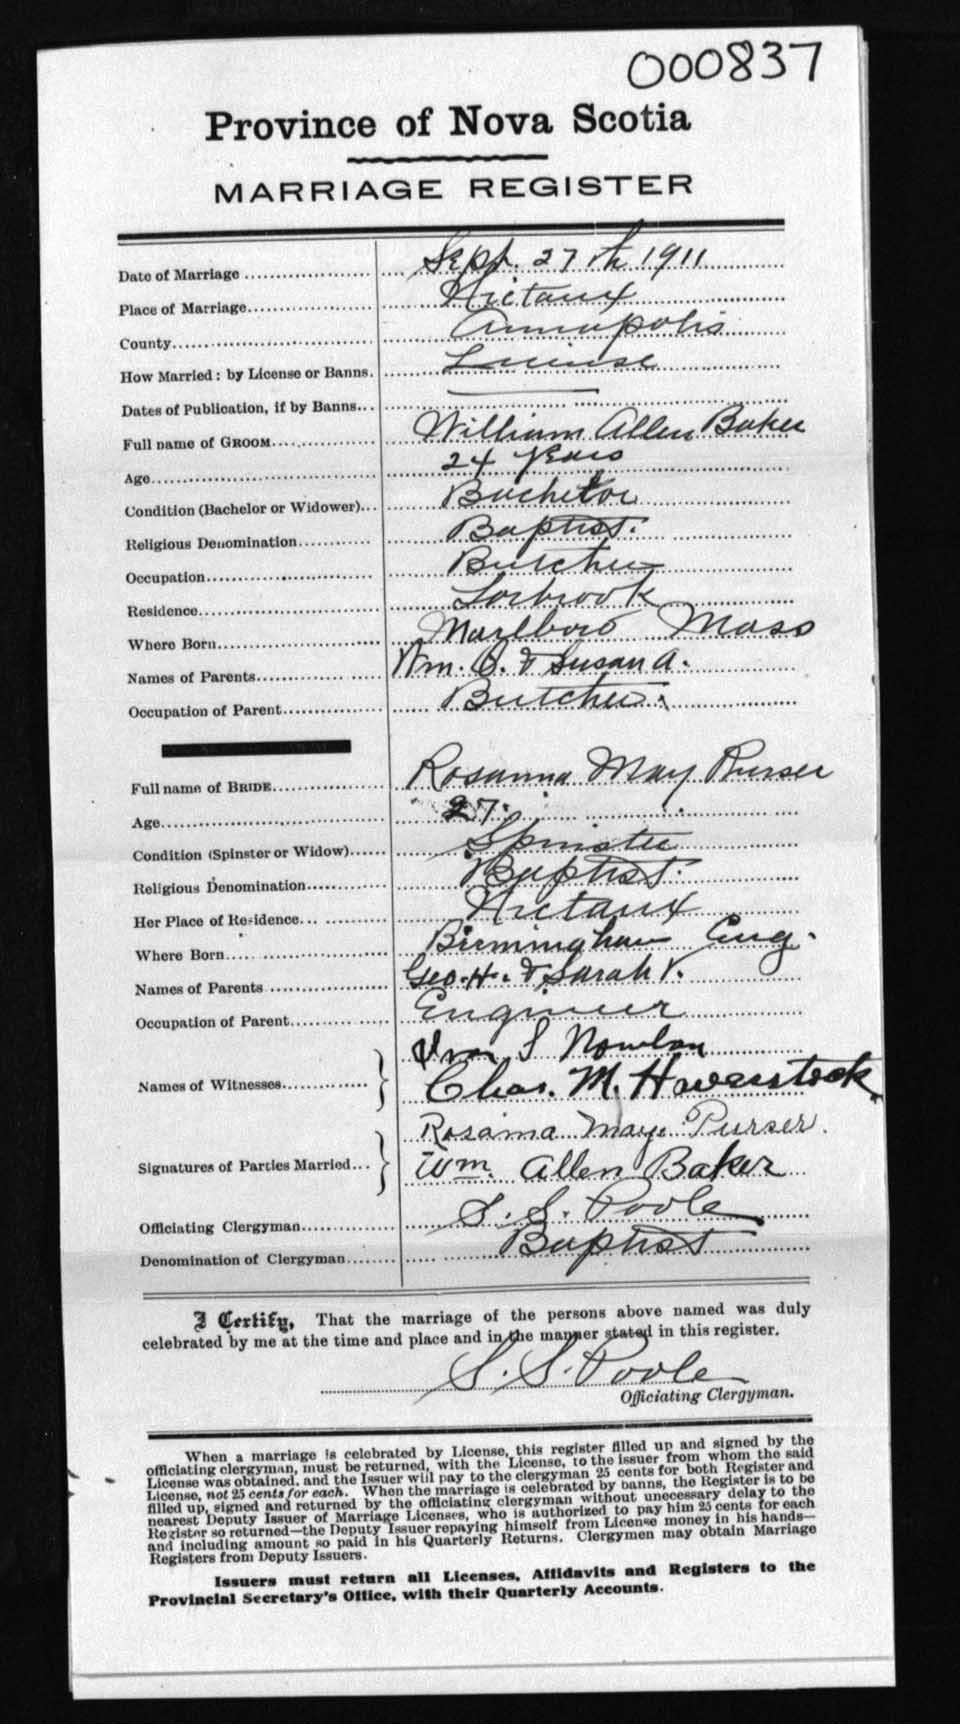 000837
Province of Nova Scotia
MARRIAGE REGISTER
Date of Marriage Sept. 27th 1911
Place of Marriage Nictaux
County Annapolis
How Married: by License or Banns. License
Dates of Publication, if by Banns
Full name of GROOM William Allen Baker
Age 24 years
Condition (Bachelor or Widower) Bachelor
Religious Denomination Baptist.
Occupation Butcher
Residence Torbrook
Where Born Marlboro Mass
Names of Parents Wm. B. & Susan A.
Occupation of Parent Butcher
Full name of BRIDE Rosanna May Purser
Age 27
Condition (Spinster or Widow) Spinster
Religious Denomination Baptist.
Her Place of Residence Nictaux
Where Born Birmingham Eng.
Names of Parents Geo. H. & Sarah
Occupation of Parent Engineer
S
Names of Witnesses
Chas. M. Haverstock
Rosanna May Purser.
Signatures of Parties Married Wm. Allen Baker
Officiating Clergyman S. S. Poole
Denomination of Clergyman Baptist
I Certify, That the marriage of the persons above named was duly
celebrated by me at the time and place and in the manner stated in this register.
S. S. Poole
Officiating Clergyman.
When a marriage is celebrated by License, this register filled up and signed by the
officiating clergyman, must be returned, with the License, to the issuer from whom the said
License was obtained, and the Issuer will pay to the clergyman 25 cents for both Register and
License, not 25 cents for each. When the marriage is celebrated by banns, the Register is to be
filled up, signed and returned by the officiating clergyman without unecessary delay to the
nearest Deputy Issuer of Marriage Licenses, who is authorized to pay him 25 cents for each
Register so returned—the Deputy Issuer repaying himself from License money in his hands—
and including amount so paid in his Quarterly Returns. Clergymen may obtain Marriage
Registers from Deputy Issuers.
Issuers must return all Licenses, Affidavits and Registers to the
Provincial Secretary's Office, with their Quarterly Accounts.